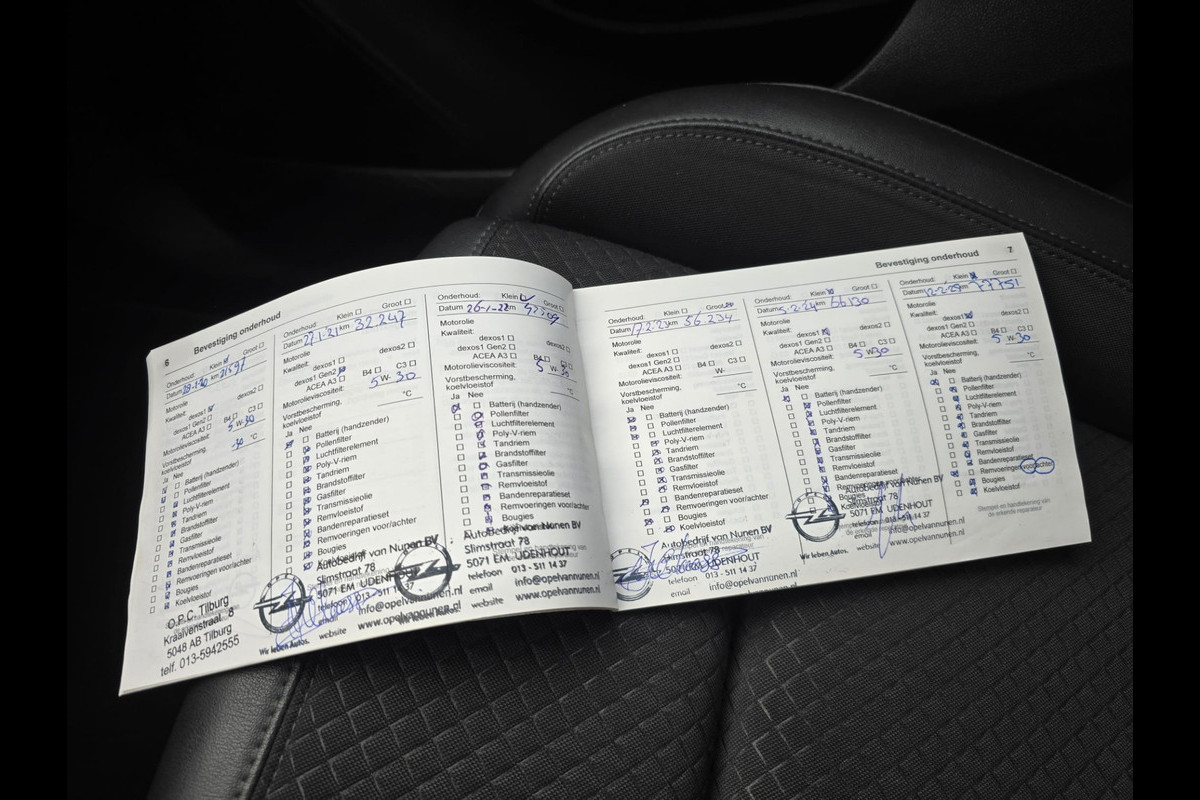 6
Bevestiging onderhoud
Onderhoud: Klein Groot
Datum 28-1-20 km 21591
Motorolie
Kwaliteit:
dexos1 dexos2
dexos1 Gen2
ACEA A3 B4 C3
Motorolieviscositeit: 5 W-30
Vorstbescherming, koelvloeistof -30 °C
Ja Nee
Batterij (handzender)
Pollenfilter
Luchtfilterelement
Poly-V-riem
Tandriem
Brandstoffilter
Gasfilter
Transmissieolie
Remvloeistof
Bandenreparatieset
Remvoeringen voor/achter
Bougies
Koelvloeistof
O.P.C. Tilburg
Kraaivenstraat 8
5048 AB Tilburg
telf. 013-5942555
Onderhoud: Klein Groot
Datum 27-1-21 km 32.247
Motorolie
Kwaliteit:
dexos1 dexos2
dexos1 Gen2
ACEA A3 B4 C3
Motorolieviscositeit: 5 W-30
Vorstbescherming, koelvloeistof °C
Ja Nee
Batterij (handzender)
Pollenfilter
Luchtfilterelement
Poly-V-riem
Tandriem
Brandstoffilter
Gasfilter
Transmissieolie
Remvloeistof
Bandenreparatieset
Remvoeringen voor/achter
Bougies
Autobedrijf van Nunen BV
Slimstraat 78
5071 EM UDENHOUT
telefoon 013 - 511 14 37
email info@opelvannunen.nl
website www.opelvannunen.nl
Wir leben Autos.
Onderhoud: Klein Groot
Datum 26-1-22 km 42509
Motorolie
Kwaliteit:
dexos1 dexos2
dexos1 Gen2
ACEA A3 B4 C3
Motorolieviscositeit: 5 W-30
Vorstbescherming, koelvloeistof °C
Ja Nee
Batterij (handzender)
Pollenfilter
Luchtfilterelement
Poly-V-riem
Tandriem
Brandstoffilter
Gasfilter
Transmissieolie
Remvloeistof
Bandenreparatieset
Remvoeringen voor/achter
Bougies
Autobedrijf van Nunen BV
Slimstraat 78
5071 EM UDENHOUT
telefoon 013 - 511 14 37
email info@opelvannunen.nl
website www.opelvannunen.nl
7
Bevestiging onderhoud
Onderhoud: Klein Groot
Datum 17-2-23 km 56.234
Motorolie
Kwaliteit:
dexos1 dexos2
dexos1 Gen2
ACEA A3 B4 C3
Motorolieviscositeit: W-
Vorstbescherming, koelvloeistof °C
Ja Nee
Batterij (handzender)
Pollenfilter
Luchtfilterelement
Poly-V-riem
Tandriem
Brandstoffilter
Gasfilter
Transmissieolie
Remvloeistof
Bandenreparatieset
Remvoeringen voor/achter
Bougies
Koelvloeistof
Autobedrijf van Nunen BV
Slimstraat 78
5071 EM UDENHOUT
telefoon 013 - 511 14 37
email info@opelvannunen.nl
Onderhoud: Klein Groot
Datum 5-2-24 km 66130
Motorolie
Kwaliteit:
dexos1 dexos2
dexos1 Gen2
ACEA A3 B4 C3
Motorolieviscositeit: 5 W-30
Vorstbescherming, koelvloeistof °C
Ja Nee
Batterij (handzender)
Pollenfilter
Luchtfilterelement
Poly-V-riem
Tandriem
Brandstoffilter
Gasfilter
Transmissieolie
Remvloeistof
Bandenreparatieset
Remvoeringen voor/achter
Bougies
Koelvloeistof
Autobedrijf van Nunen BV
Slimstraat 78
5071 EM UDENHOUT
telefoon 013 - 511 14 37
email info@opelvannunen.nl
website www.opelvannunen.nl
Wir leben Autos.
Onderhoud: Klein Groot
Datum 12-2-25 km 77751
Motorolie
Kwaliteit:
dexos1 dexos2
dexos1 Gen2
ACEA A3 B4 C3
Motorolieviscositeit: 5 W-30
Vorstbescherming, koelvloeistof °C
Ja Nee
Batterij (handzender)
Pollenfilter
Luchtfilterelement
Poly-V-riem
Tandriem
Brandstoffilter
Gasfilter
Transmissieolie
Remvloeistof
Bandenreparatieset
Remvoeringen voor/achter
Bougies
Koelvloeistof
Stempel en handtekening van
de erkende reparateur